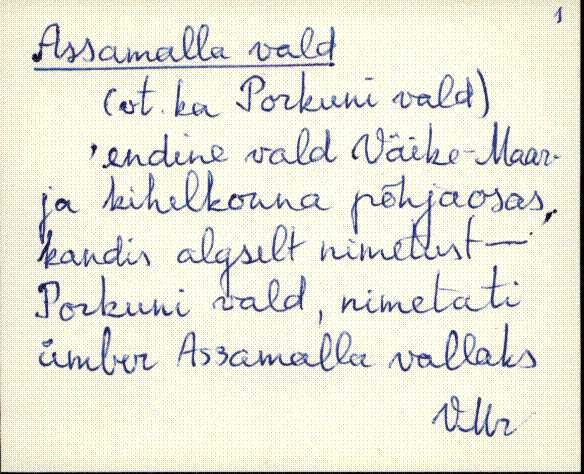 1
Assamalla vald
(vt. ka Porkuni vald)
'endine vald Väike-Maar-
ja kihelkonna põhjaosas,
kandis algselt nimetust —
Porkuni vald, nimetati
ümber Assamalla vallaks
VMr